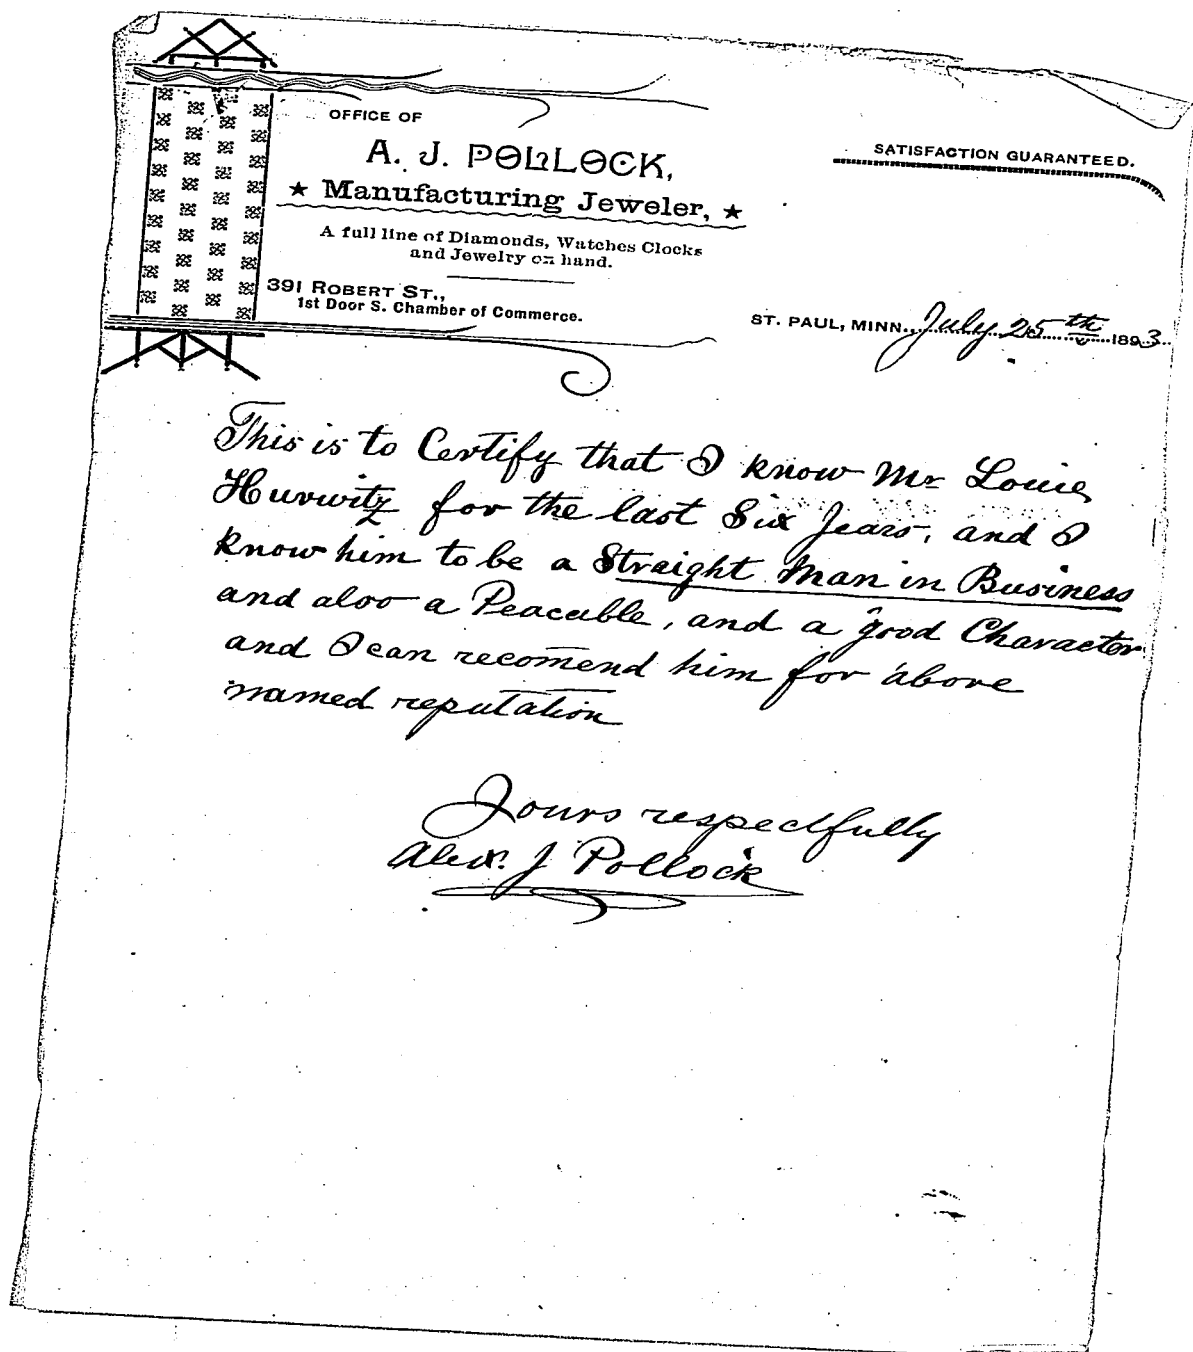 OFFICE OF
A. J. POLLOCK,
★ Manufacturing Jeweler, ★
A full line of Diamonds, Watches Clocks
and Jewelry on hand.
391 ROBERT ST.,
1st Door S. Chamber of Commerce.
SATISFACTION GUARANTEED.
ST. PAUL, MINN., July 25th 1893
This is to Certify that I know Mr Louie
Hurwitz for the last Six Years, and I
know him to be a Straight Man in Business
and also a Peacable, and a good Character
and I can recomend him for above
named reputation
Yours respectfully
Alex. J Pollock